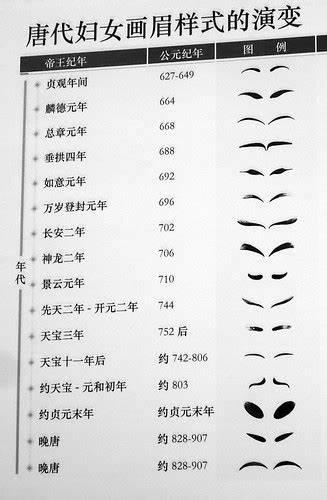 唐代妇女画眉样式的演变
帝王纪年 公元纪年 图 例
贞观年间 627-649
麟德元年 664
总章元年 668
垂拱四年 688
如意元年 692
万岁登封元年 696
长安二年 702
神龙二年 706
景云元年 710
先天二年-开元二年 744
天宝三年 752后
天宝十一年后 约742-806
约天宝-元和初年 约803
约贞元末年 约贞元末年
晚唐 约828-907
晚唐 约828-907
年代